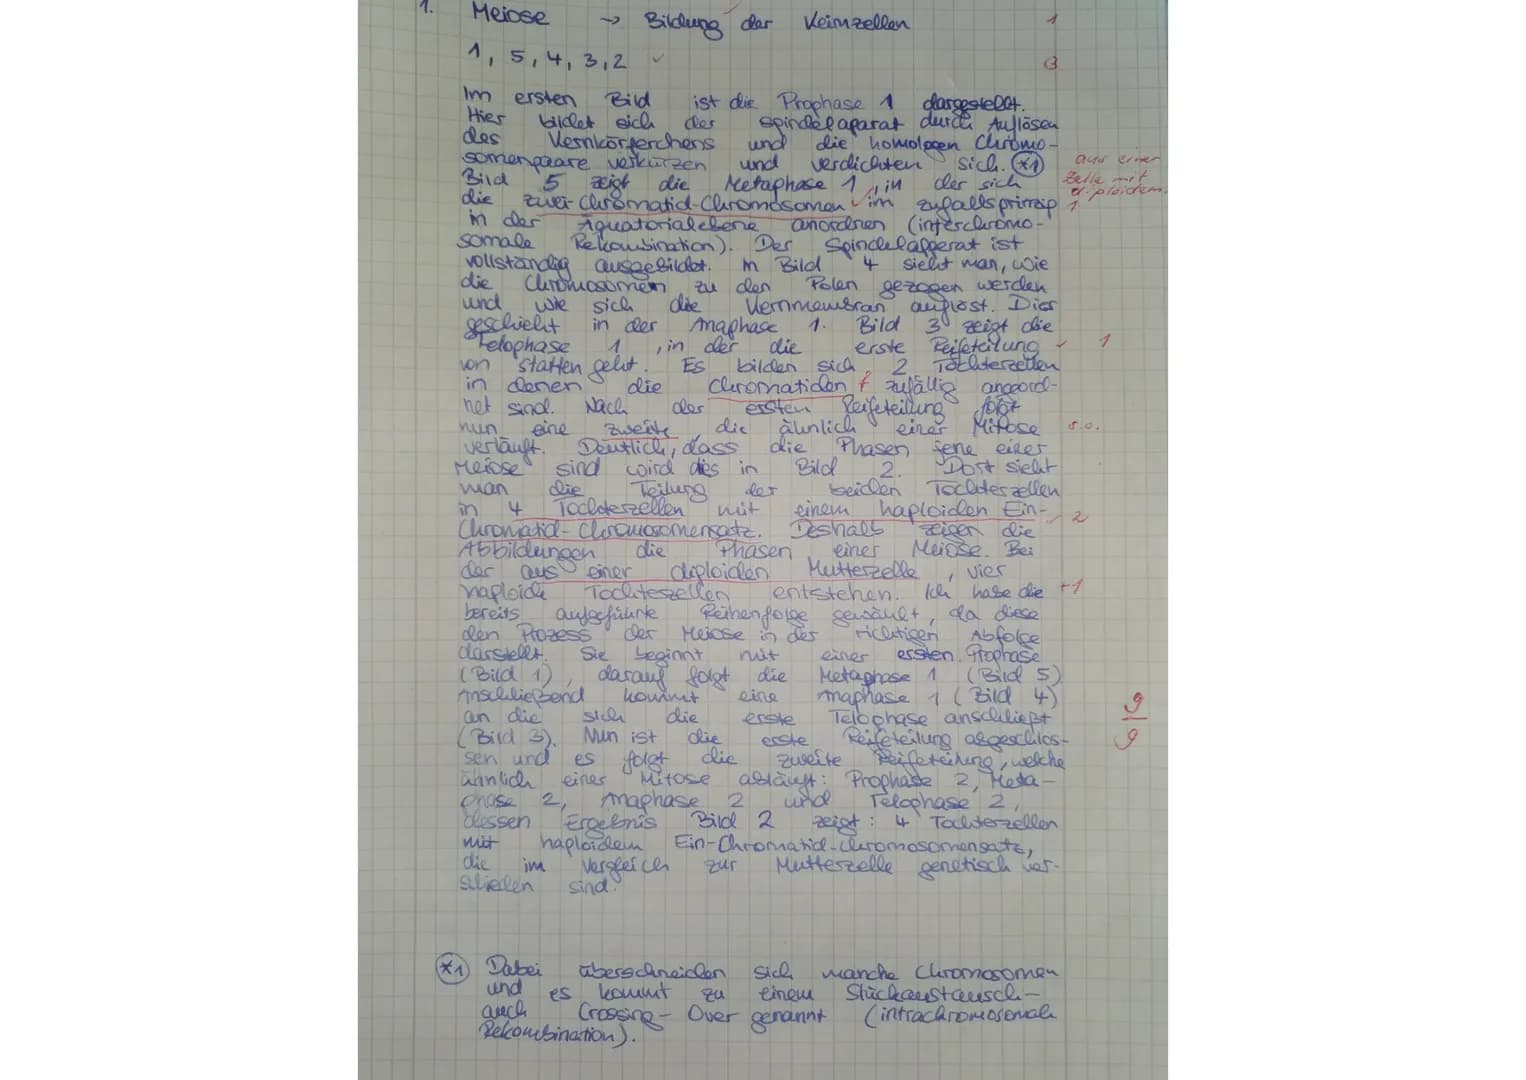 1. Meiose → Bildung der Keimzellen 1
1, 5, 4, 3, 2 ✓ 3
Im ersten Bild ist die Prophase 1 dargestellt.
Hier bildet sich der Spindelaparat durch Auflösen
des Kernkörperchens und die homologen Chromo-
somenpaare verkürzen und verdichten sich. *1 aus einer
Bild 5 zeigt die Metaphase 1, in der sich Zelle mit
die zwei-Chromatid-Chromosomen ✓ im zufallsprinzip diploidem
in der Äquatorialebene anordnen (interchromo- 1
somale Rekombination). Der Spindelapperat ist
vollständig ausgebildet. In Bild 4 sieht man, wie
die Chromosomen zu den Polen gezogen werden
und wie sich die Kernmembran auflöst. Dies
geschieht in der Anaphase 1. Bild 3 zeigt die
Telophase 1, in der die erste Reifeteilung ✓ 1
von statten geht. Es bilden sich 2 Tochterzellen
in denen die Chromatiden f zufällig angeord-
net sind. Nach der ersten Reifeteilung folgt
nun eine zweite die ähnlich einer Mitose s.o.
verläuft. Deutlich, dass die Phasen jene einer
Meiose sind wird dies in Bild 2. Dort sieht
man die Teilung der beiden Tochterzellen
in 4 Tochterzellen mit einem haploiden Ein- ✓ 2
Chromatid-Chromosomensatz. Deshalb zeigen die
Abbildungen die Phasen einer Meiose. Bei
der aus einer diploiden Mutterzelle, vier
haploide Tochterzellen entstehen. Ich habe die +1
bereits aufgeführte Reihenfolge gewählt, da diese
den Prozess der Meiose in der richtigen Abfolge
darstellt. Sie beginnt mit einer ersten Prophase
(Bild 1), darauf folgt die Metaphase 1 (Bild 5)
Anschließend kommt eine Anaphase 1 (Bild 4)
an die sich die erste Telophase anschließt 9
(Bild 3). Nun ist die erste Reifeteilung abgeschlos- 9
sen und es folgt die zweite Reifeteilung, welche
ähnlich einer Mitose abläuft: Prophase 2, Meta-
phase 2, Anaphase 2 und Telophase 2,
dessen Ergebnis Bild 2 zeigt: 4 Tochterzellen
mit haploidem Ein-Chromatid-Chromosomensatz,
die im Vergleich zur Mutterzelle genetisch ver-
schieden sind.
*1 Dabei überschneiden sich manche Chromosomen
und es kommt zu einem Stückaustausch-
auch Crossing-Over genannt (intrachromosomale
Rekombination).